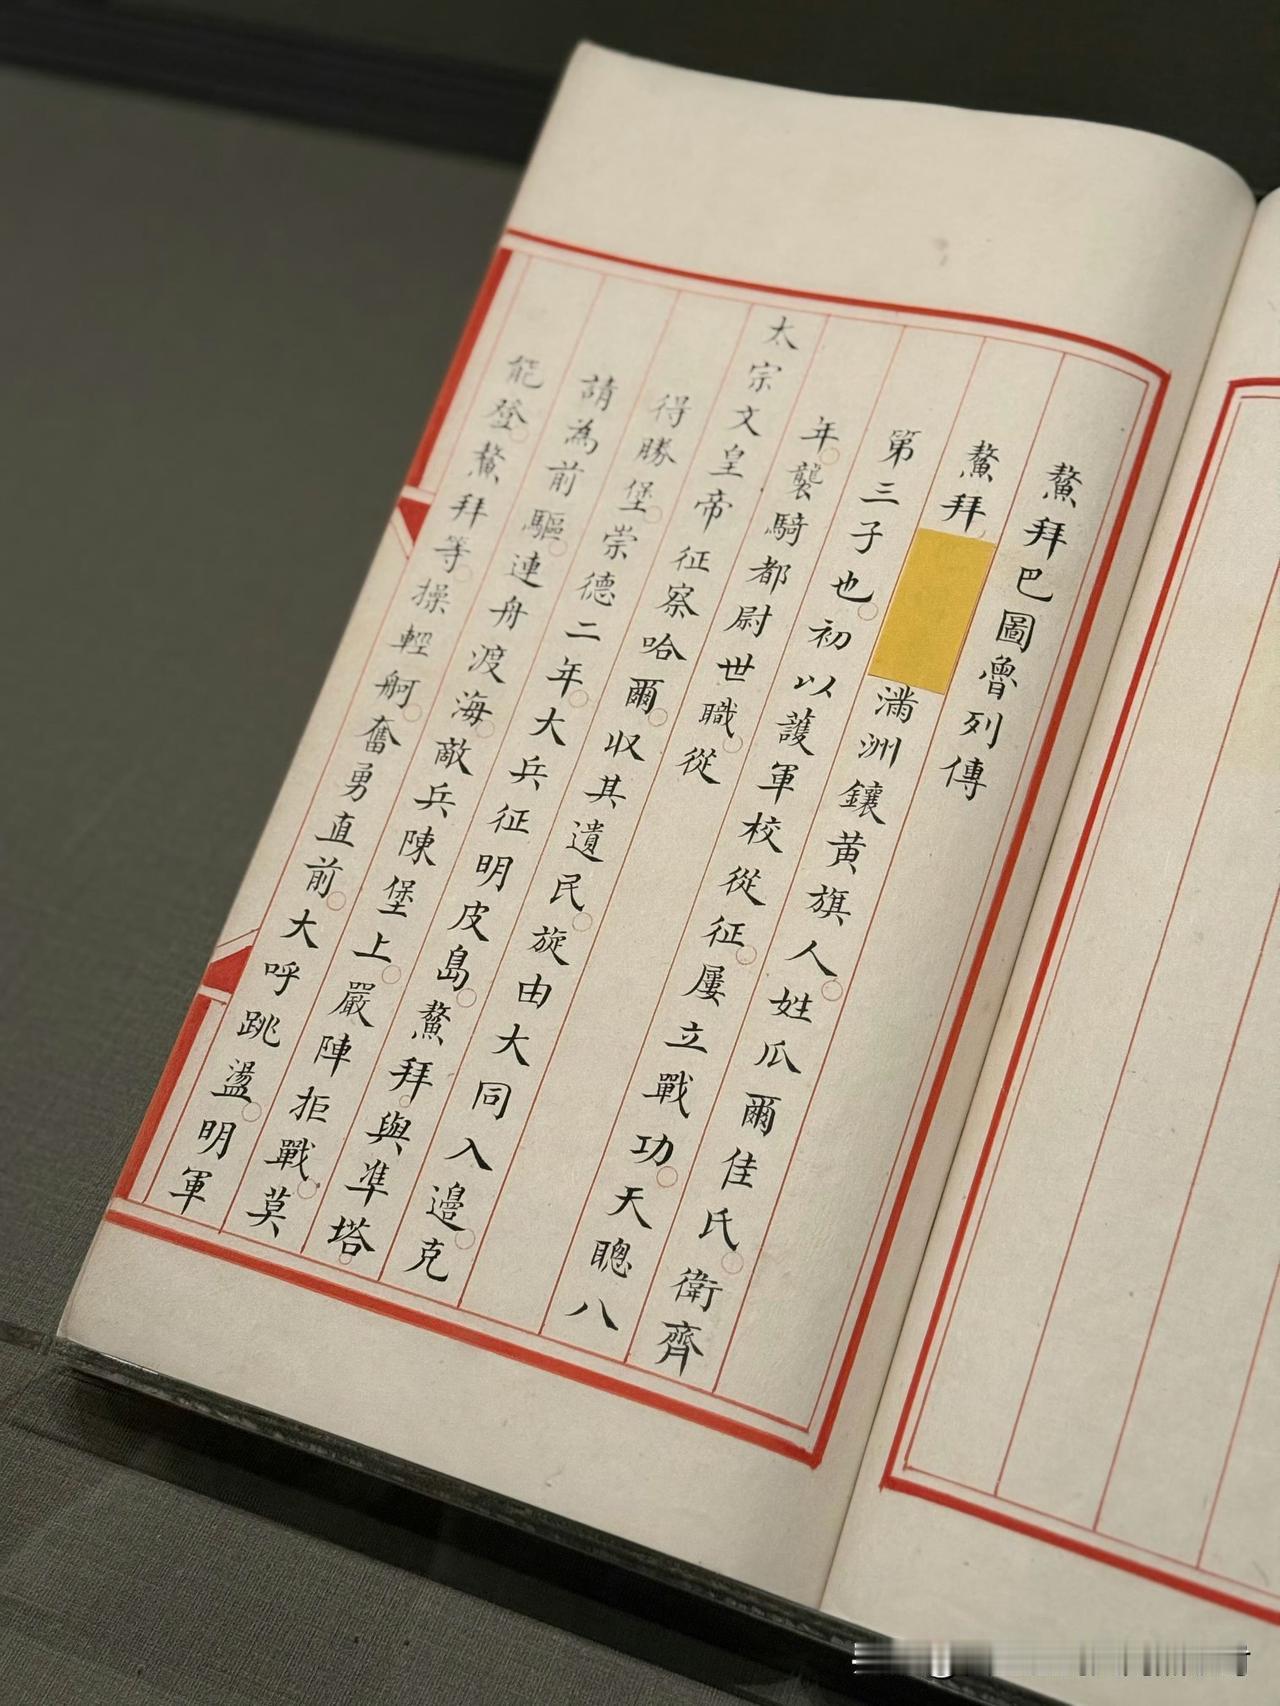 鰲拜巴圖魯列傳
鰲拜滿洲鑲黃旗人姓瓜爾佳氏衛齊
第三子也初以護軍校從征屢立戰功天聰八
年襲騎都尉世職從
太宗文皇帝征察哈爾收其遺民旋由大同入邊克
得勝堡崇德二年大兵征明皮島鰲拜與準塔
請為前驅連舟渡海敵兵陳堡上嚴陣拒戰莫
能登鰲拜等操輕舸奮勇直前大呼跳盪明軍